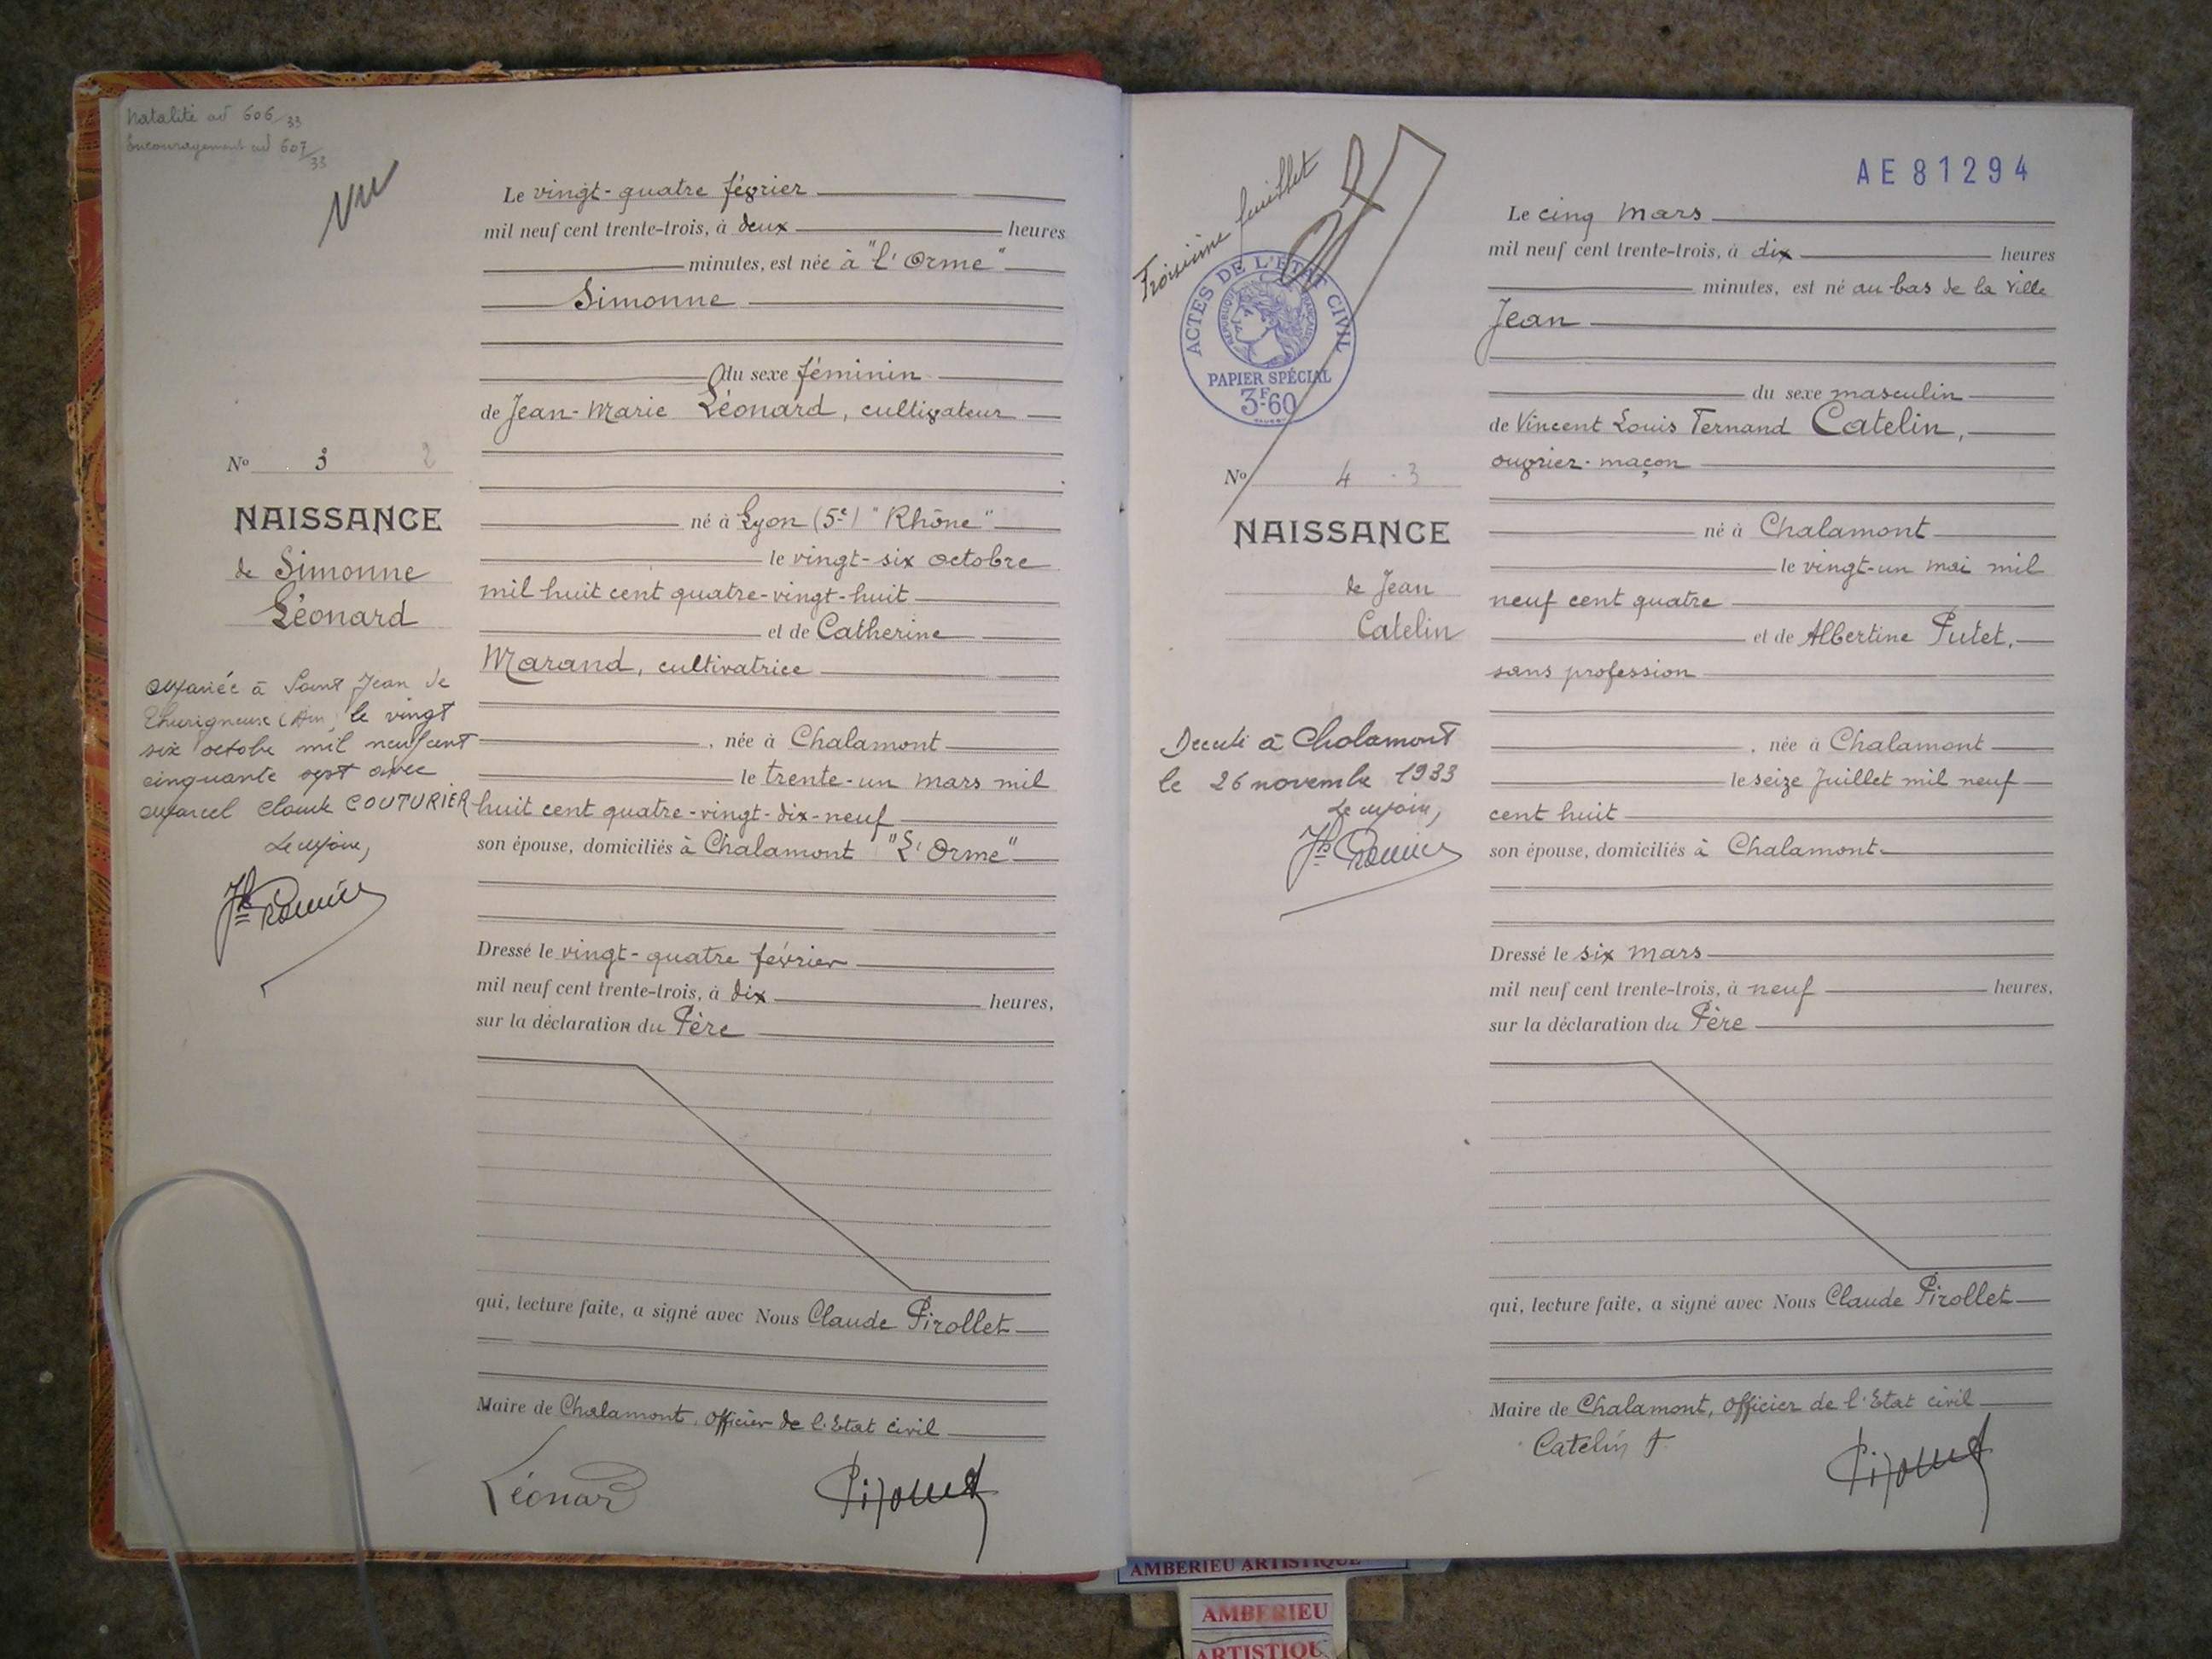 Natalité ad 606/33
Encouragement ad 607/33
Vu
Le vingt-quatre février
mil neuf cent trente-trois, à deux heures
minutes, est née à "l'Orme"
Simonne
du sexe féminin
de Jean-Marie Léonard, cultivateur
né à Lyon (5e) "Rhône"
le vingt-six octobre
mil huit cent quatre-vingt-huit
et de Catherine
Marand, cultivatrice
, née à Chalamont
le trente-un mars mil
huit cent quatre-vingt-dix-neuf
son épouse, domiciliés à Chalamont "L'Orme"
Dressé le vingt-quatre février
mil neuf cent trente-trois, à dix heures,
sur la déclaration du Père
qui, lecture faite, a signé avec Nous Claude Pirollet
Maire de Chalamont, Officier de l'Etat civil
Léonard
Pirollet
No 3 2
NAISSANCE
de Simonne
Léonard
Mariée à Saint Jean de
Thurigneux (Ain) le vingt
six octobre mil neuf cent
cinquante sept avec
Marcel Claude COUTURIER
Le Maire,
Troisième feuillet
ACTES DE L'ÉTAT CIVIL
RÉPUBLIQUE FRANÇAISE
PAPIER SPÉCIAL
3F60
AE81294
Le cinq mars
mil neuf cent trente-trois, à dix heures
minutes, est né au bas de la ville
Jean
du sexe masculin
de Vincent Louis Fernand Catelin,
ouvrier-maçon
né à Chalamont
le vingt-un mai mil
neuf cent quatre
et de Albertine Putet,
sans profession
, née à Chalamont
le seize Juillet mil neuf
cent huit
son épouse, domiciliés à Chalamont
Dressé le six mars
mil neuf cent trente-trois, à neuf heures,
sur la déclaration du Père
qui, lecture faite, a signé avec Nous Claude Pirollet
Maire de Chalamont, Officier de l'Etat civil
Catelin F
Pirollet
No 4 3
NAISSANCE
de Jean
Catelin
Décédé à Chalamont
le 26 novembre 1933
Le Maire,
AMBERIEU ARTISTIQUE
AMBERIEU
ARTISTIQU